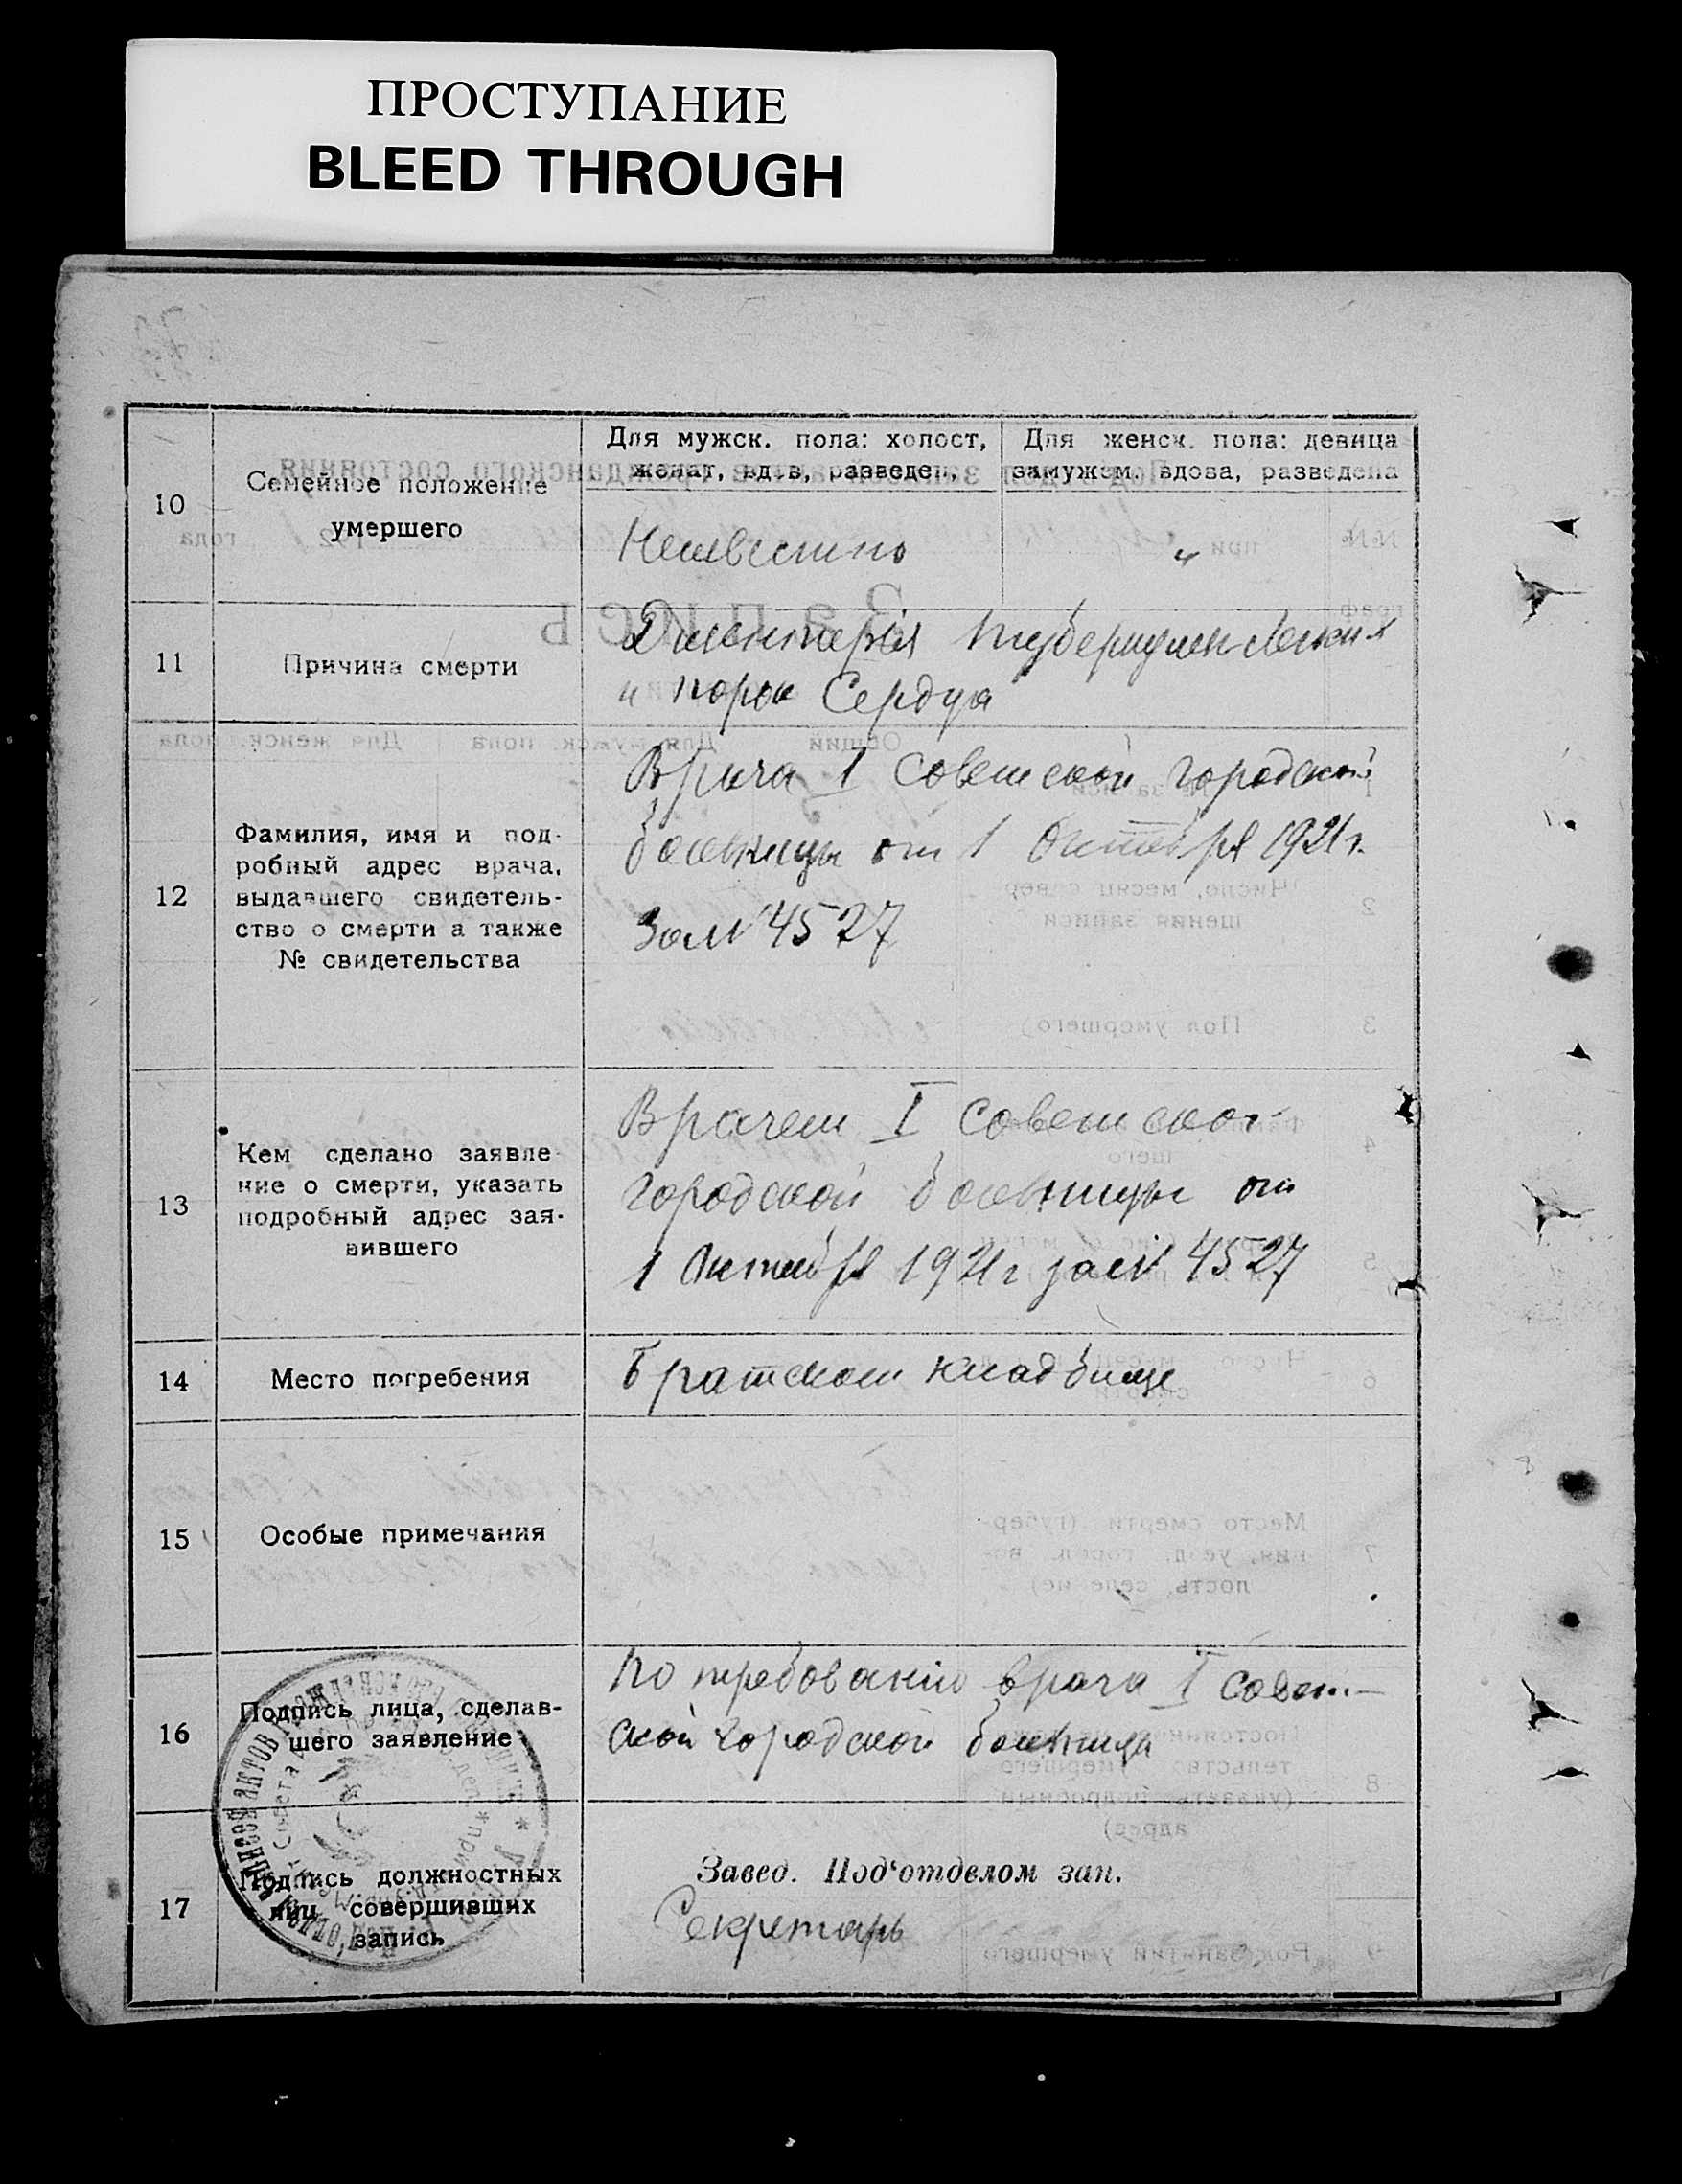 ПРОСТУПАНИЕ
BLEED THROUGH
10
Семейное положение
умершего
Для мужск. пола: холост,
женат, вдов, разведен,
Для женск. пола: девица
замужем, вдова, разведена
Неизвестно
"
11
Причина смерти
Дизентерия туберкулез Легких
и порок Сердца
12
Фамилия, имя и под-
робный адрес врача,
выдавшего свидетель-
ство о смерти а также
№ свидетельства
Врача 1 Советской городской
больницы от 1 Октября 1921 г.
за № 4527
13
Кем сделано заявле-
ние о смерти, указать
подробный адрес зая-
вившего
Врачем I Советской
городской больницы от
1 Октября 1921 г за № 4527
14
Место погребения
Братском кладбище
15
Особые примечания
16
Подпись лица, сделав-
шего заявление
По требованию врача I Совет-
ской городской больницы
17
Подпись должностных
лиц совершивших
запись
Завед. Под‘отделом зап.
Секретарь